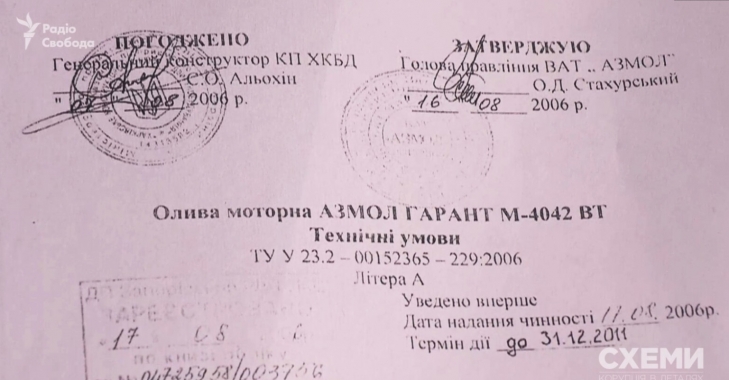 Радіо
Свобода
ПОГОДЖЕНО
Генеральний конструктор КП ХКБД
С.О. Альохін
08 2006 р.
ЗАТВЕРДЖУЮ
Голова правління ВАТ ,, АЗМОЛ"
О.Д. Стахурський
" 16 " 08 2006 р.
Олива моторна АЗМОЛ ГАРАНТ М-4042 ВТ
Технічні умови
ТУ У 23.2 – 00152365 – 229:2006
Літера А
Уведено вперше
Дата надання чинності 17.08. 2006р.
Термін дії до 31.12.2011
ЗАРЕЄСТРОВАНО
17 08
№ 04725958/003956
СХЕМИ